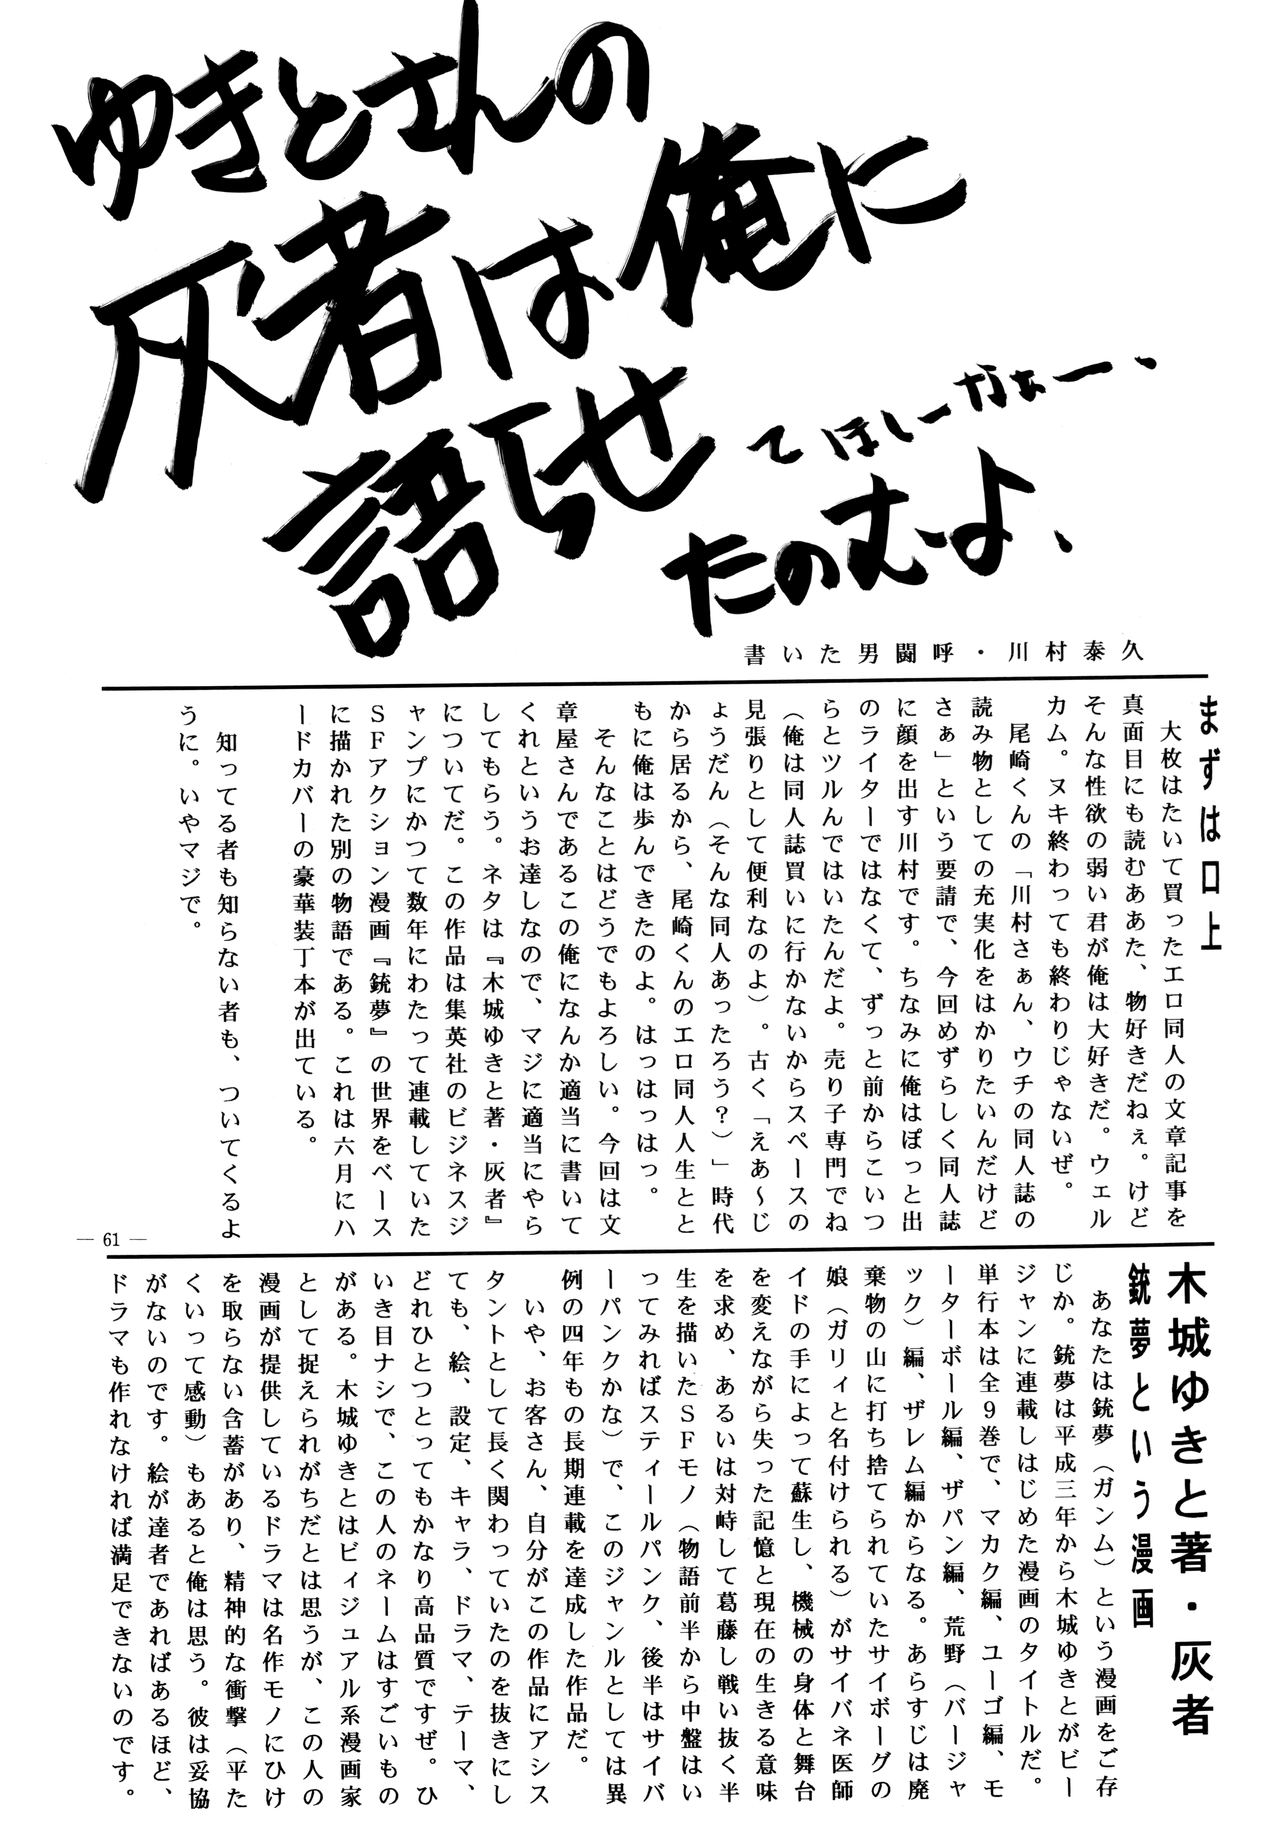 ゆきとさんの
灰者は俺に
語らせ
てほしーなぁー、
たのむよ、
書いた男闘呼・川村泰久
まずは口上
　大枚はたいて買ったエロ同人の文章記事を
真面目にも読むああた、物好きだねぇ。けど
そんな性欲の弱い君が俺は大好きだ。ウェル
カム。ヌキ終わっても終わりじゃないぜ。
　尾崎くんの「川村さぁん、ウチの同人誌の
読み物としての充実化をはかりたいんだけど
さぁ」という要請で、今回めずらしく同人誌
に顔を出す川村です。ちなみに俺はぽっと出
のライターではなくて、ずっと前からこいつ
らとツルんではいたんだよ。売り子専門でね
（俺は同人誌買いに行かないからスペースの
見張りとして便利なのよ）。古く「えあ～じ
ょうだん（そんな同人あったろう？）」時代
から居るから、尾崎くんのエロ同人人生とと
もに俺は歩んできたのよ。はっはっはっ。
　そんなことはどうでもよろしい。今回は文
章屋さんであるこの俺になんか適当に書いて
くれというお達しなので、マジに適当にやら
してもらう。ネタは『木城ゆきと著・灰者』
についてだ。この作品は集英社のビジネスジ
ャンプにかつて数年にわたって連載していた
ＳＦアクション漫画『銃夢』の世界をベース
に描かれた別の物語である。これは六月にハ
ードカバーの豪華装丁本が出ている。
　知ってる者も知らない者も、ついてくるよ
うに。いやマジで。
木城ゆきと著・灰者
銃夢という漫画
　あなたは銃夢（ガンム）という漫画をご存
じか。銃夢は平成三年から木城ゆきとがビー
ジャンに連載しはじめた漫画のタイトルだ。
単行本は全９巻で、マカク編、ユーゴ編、モ
ーターボール編、ザパン編、荒野（バージャ
ック）編、ザレム編からなる。あらすじは廃
棄物の山に打ち捨てられていたサイボーグの
娘（ガリィと名付けられる）がサイバネ医師
イドの手によって蘇生し、機械の身体と舞台
を変えながら失った記憶と現在の生きる意味
を求め、あるいは対峙して葛藤し戦い抜く半
生を描いたＳＦモノ（物語前半から中盤はい
ってみればスティールパンク、後半はサイバ
ーパンクかな）で、このジャンルとしては異
例の四年もの長期連載を達成した作品だ。
　いや、お客さん、自分がこの作品にアシス
タントとして長く関わっていたのを抜きにし
ても、絵、設定、キャラ、ドラマ、テーマ、
どれひとつとってもかなり高品質ですぜ。ひ
いき目ナシで、この人のネームはすごいもの
がある。木城ゆきとはビィジュアル系漫画家
として捉えられがちだとは思うが、この人の
漫画が提供しているドラマは名作モノにひけ
を取らない含蓄があり、精神的な衝撃（平た
くいって感動）もあると俺は思う。彼は妥協
がないのです。絵が達者であればあるほど、
ドラマも作れなければ満足できないのです。
— 61 —